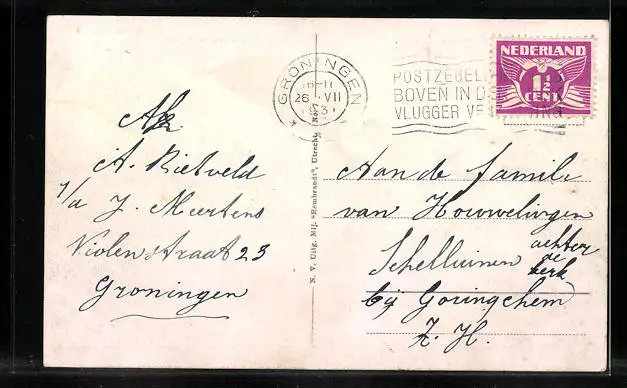 GRONINGEN
26 VII
POSTZEGEL
BOVEN IN D
VLUGGER VE
NEDERLAND
1½
CENT
Afz.
A. Rietveld
p/a J. Meertens
Violenstraat 23
Groningen
N. V. Uitg. Mij. "Rembrandt", Utrecht
Aan de familie
van Houwelingen
Schelluinen achter
de
kerk
bij Gorinchem
Z. H.